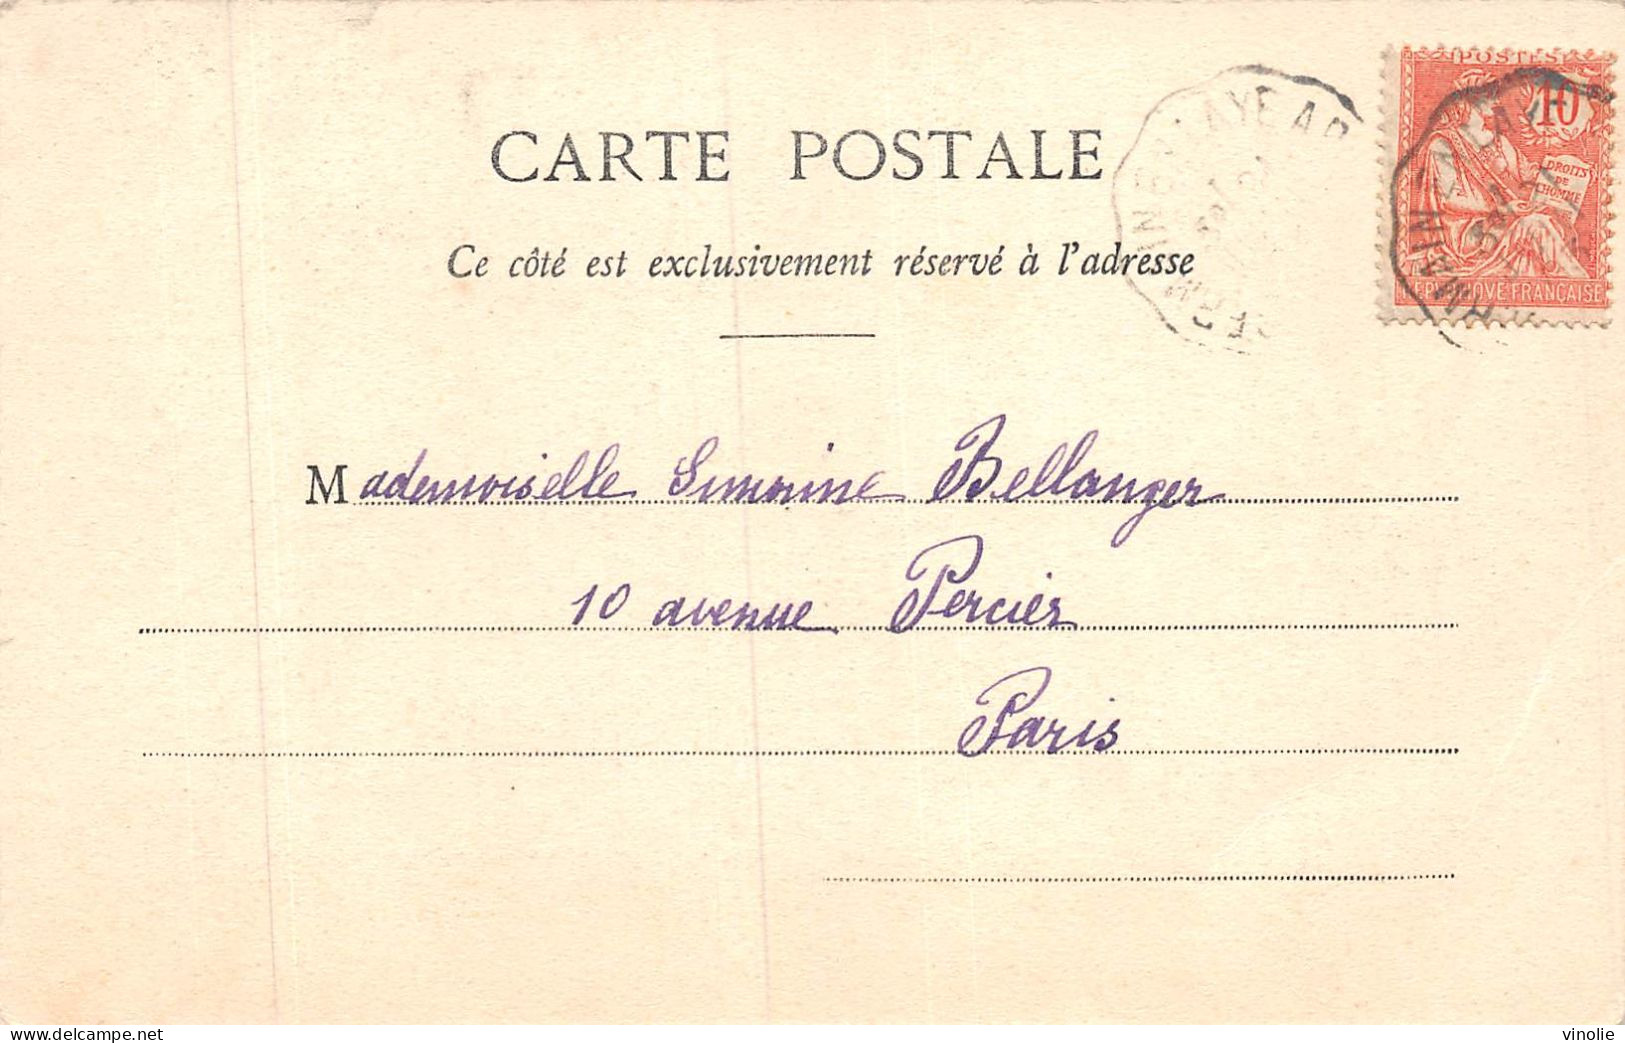 CARTE POSTALE
Ce côté est exclusivement réservé à l'adresse
POSTES
10
DROITS
DE
L'HOMME
REPUBLIQUE FRANÇAISE
Mademoiselle Simonine Bellanger
10 avenue Percier
Paris
delcampe.net
vinolie